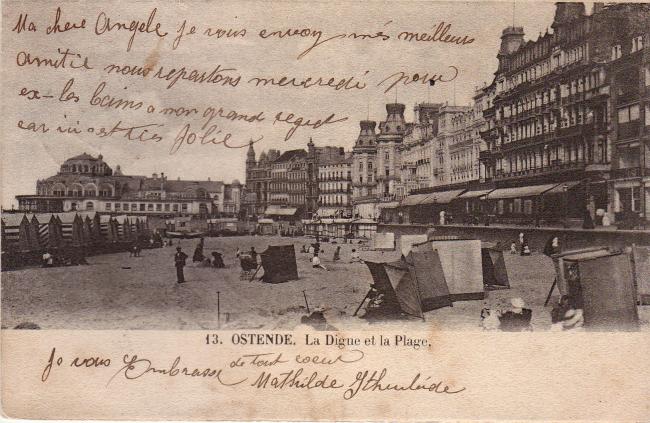 Ma chere Angele je vous envoy mes meilleurs
amitie nous repartons mercredi pour
ex-les bains a mon grand regret
car ici est tres Jolie
13. OSTENDE. La Digue et la Plage.
Je vous Embrasse de tout coeur
Mathilde